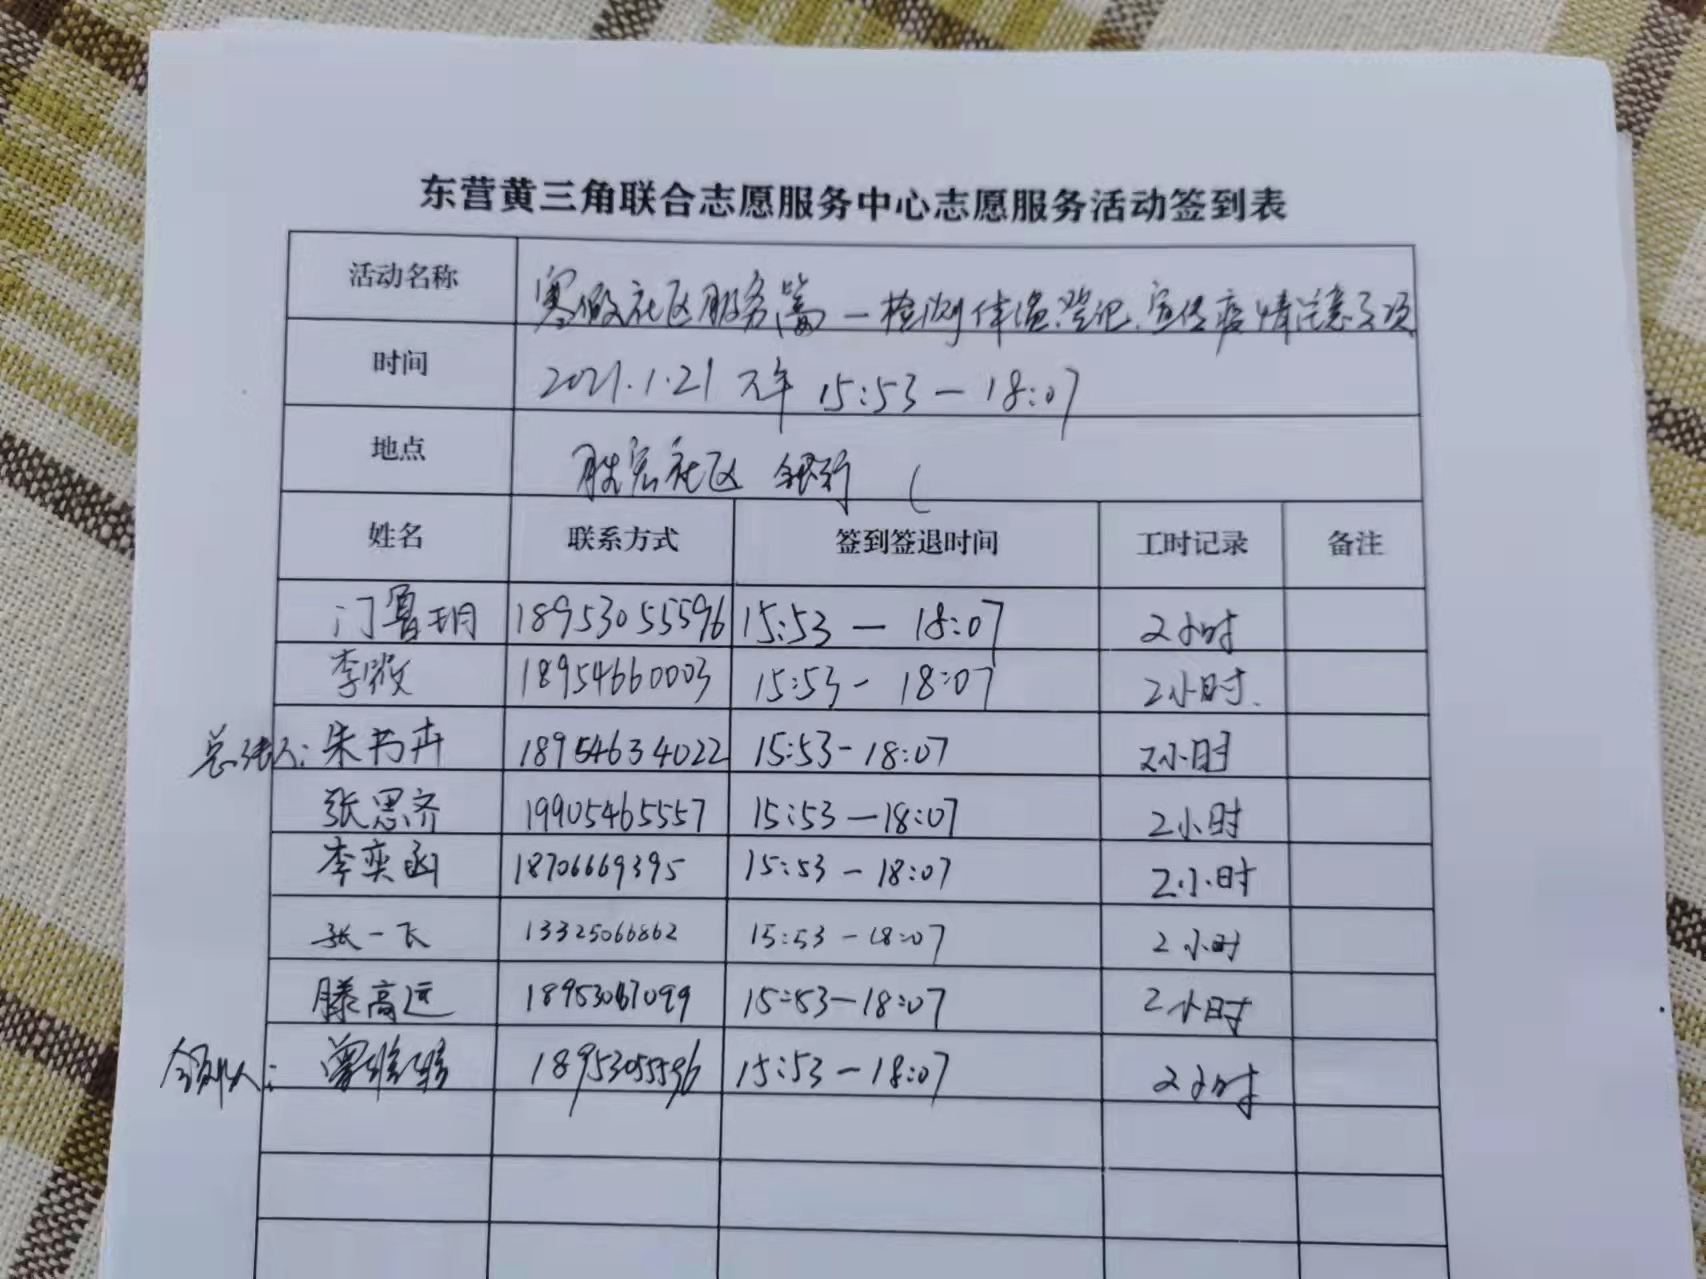 东营黄三角联合志愿服务中心志愿服务活动签到表
活动名称 寒假社区服务篇一检测体温、登记、宣传疫情注意事项
时间 2021.1.21 15:53—18:07
地点 胜宏社区 银行 (
姓名 联系方式 签到签退时间 工时记录 备注
门鲁玥 18953055596 15:53—18:07 2小时
李 18954660003 15:53-18:07 2小时.
总结人: 朱书卉 18954634022 15:53-18:07 2小时
张思齐 19905465557 15:53—18:07 2小时
李奕函 18706669395 15:53-18:07 2小时
张一飞 13325066862 15:53-18:07 2小时
滕高远 15:53-18:07 2小时
15:53-18:07 2小时